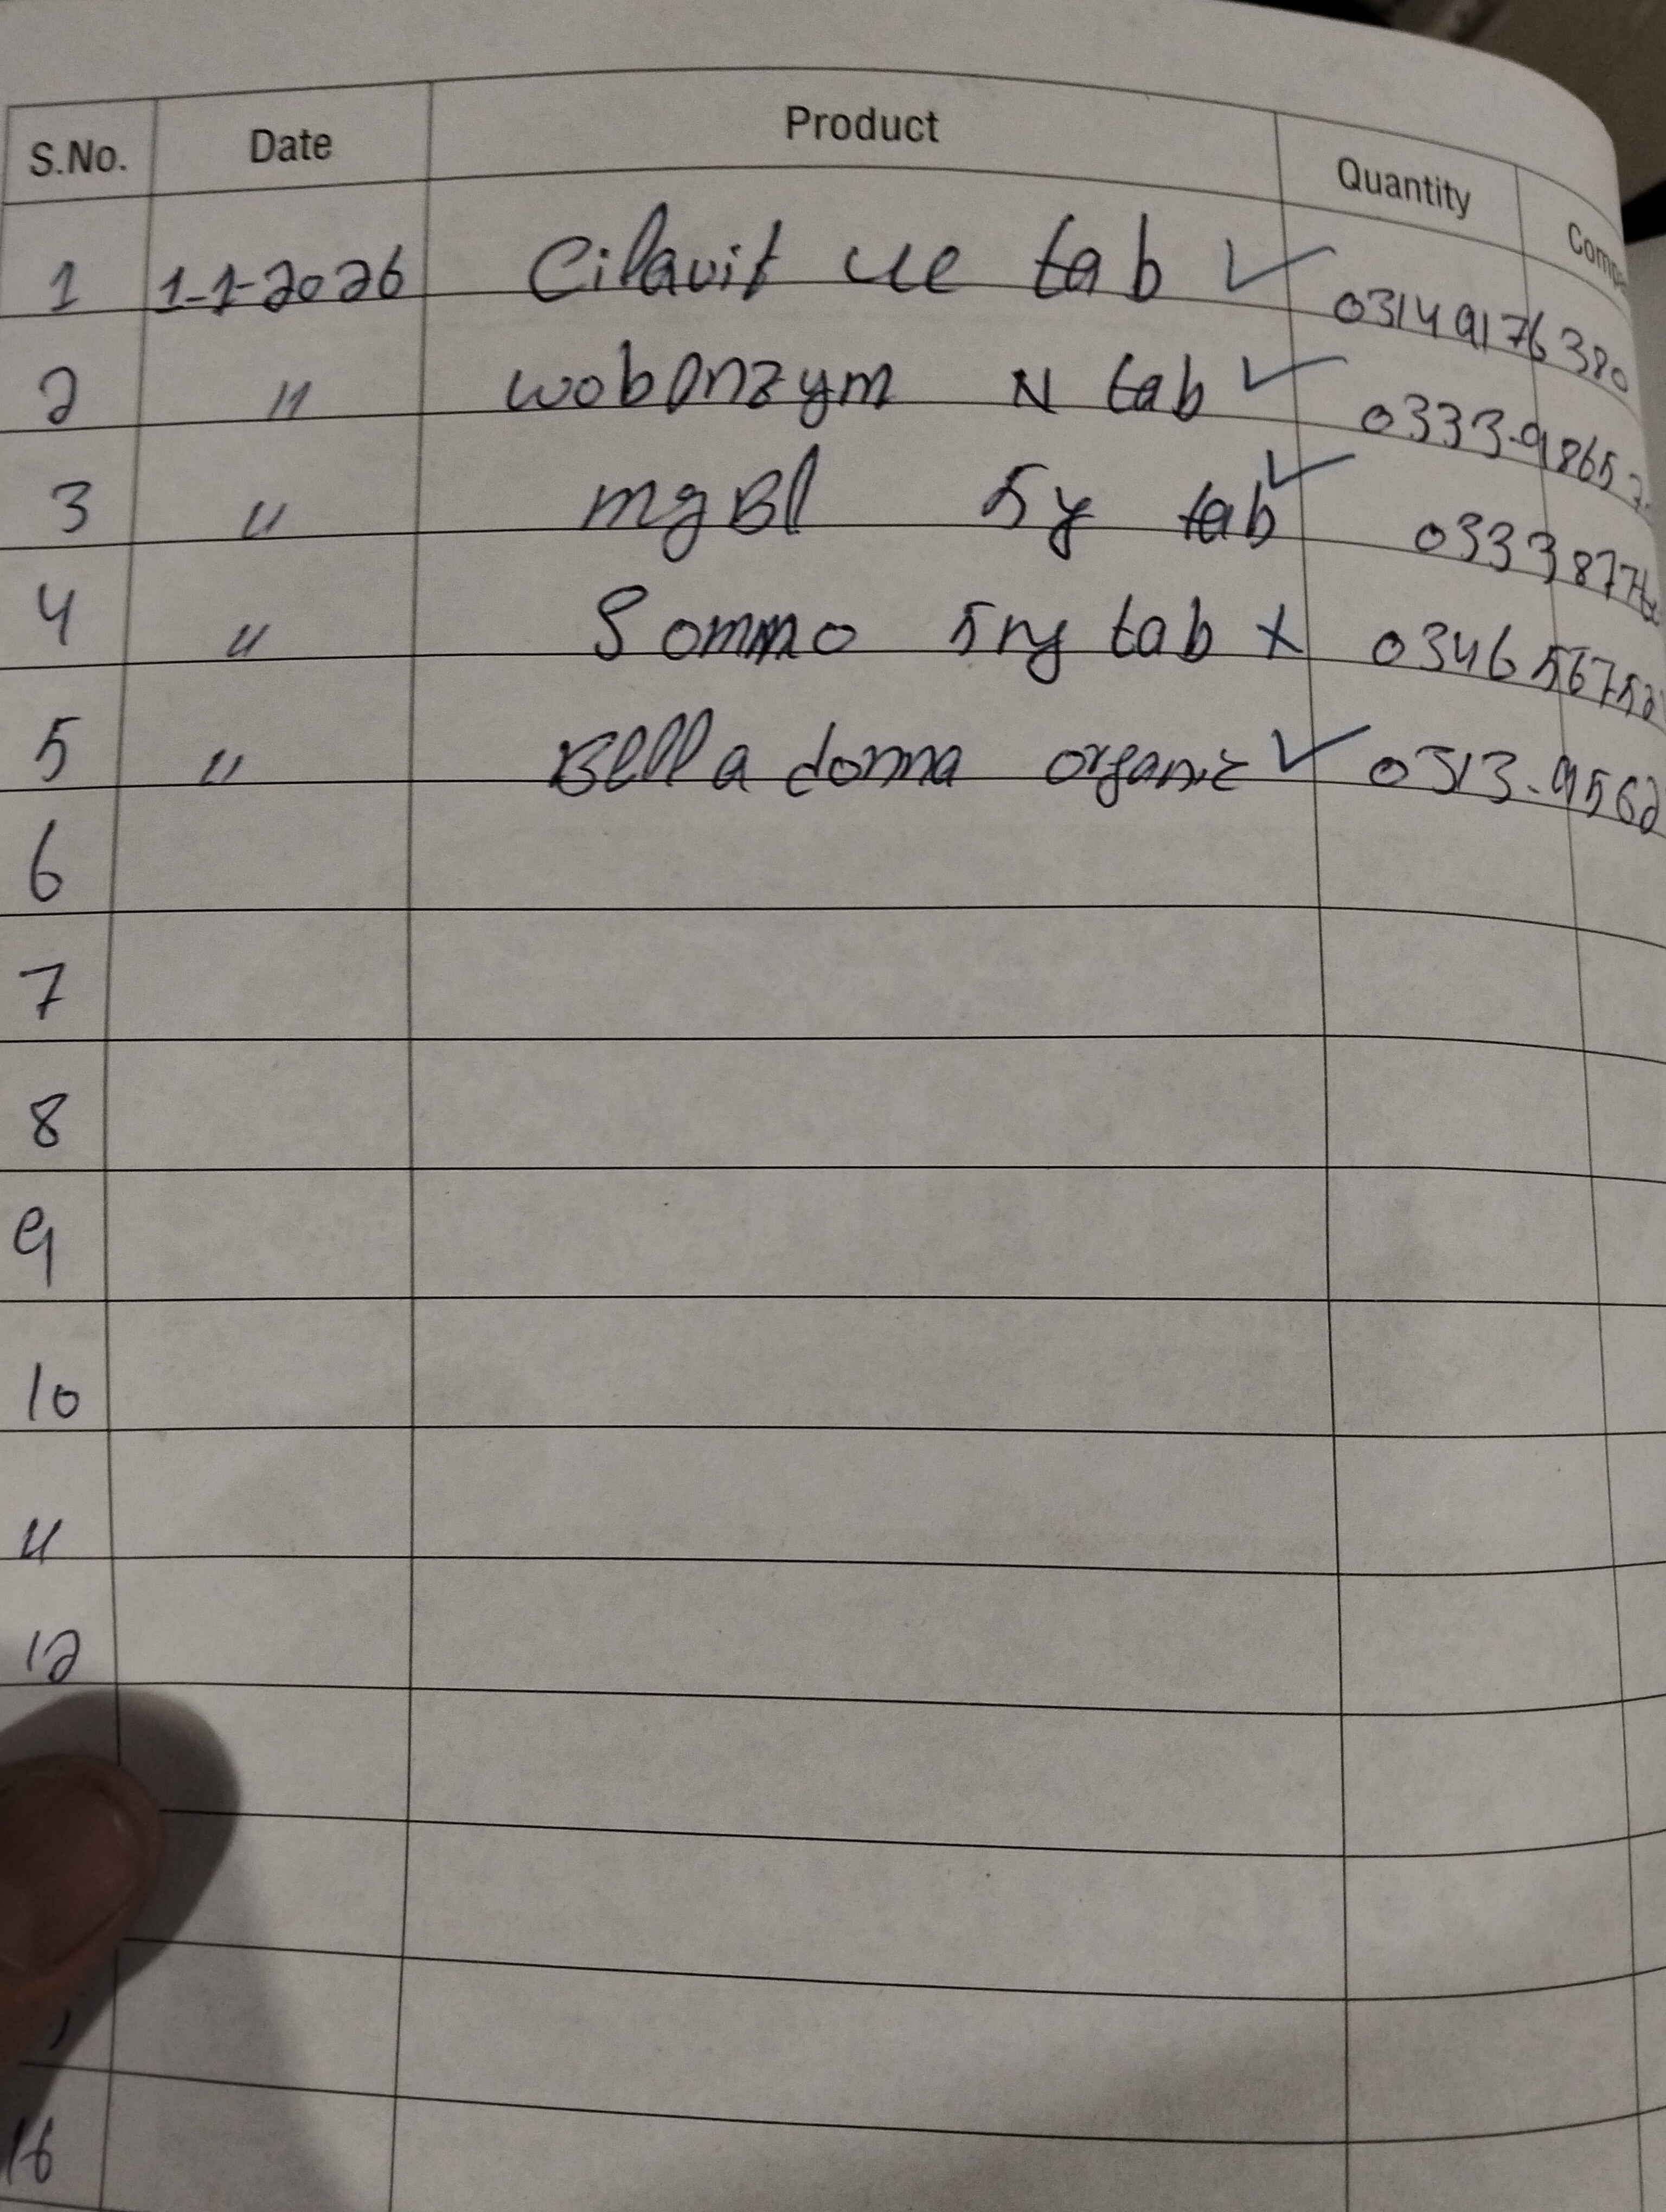 S.No. Date Product Quantity
1 1-1-2026 Cilavit ue tab ✓ 03149176380
2 " wobOnzym N tab ✓ 0333-9865
3 " mgBl 5y tab ✓ 0333 877
4 " Sommo 5ry tab x 0346 56752
5 " Bella donna organic ✓ 0313-9562
6
7
8
9
10
11
12
16